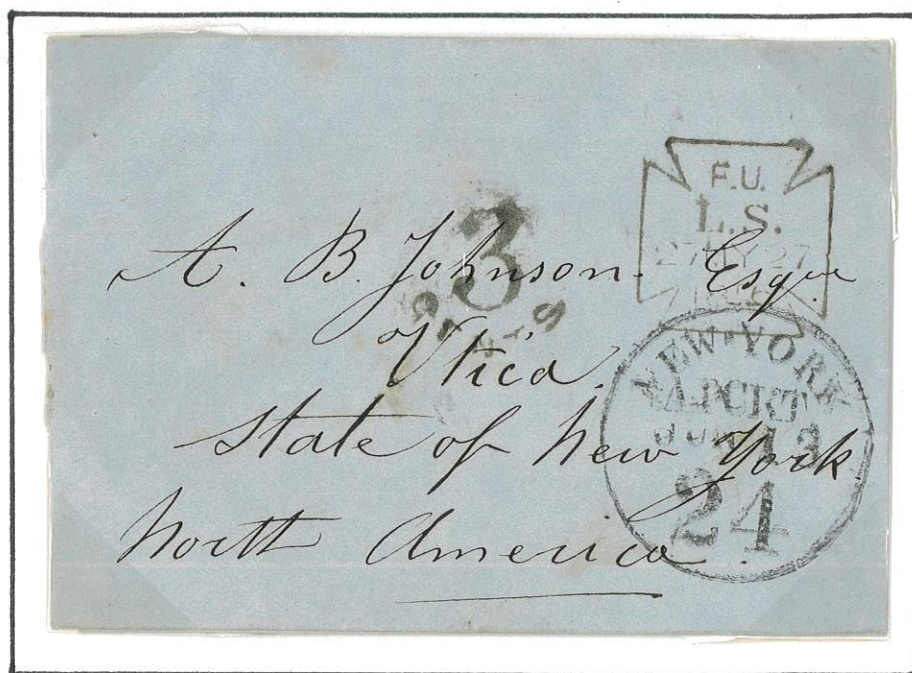 F.U.
L.S.
27 MY 27
3
CENTS
A. B. Johnson Esqre
Utica
State of New York
North America
NEW-YORK
AM. PCKT
JUN 13
24